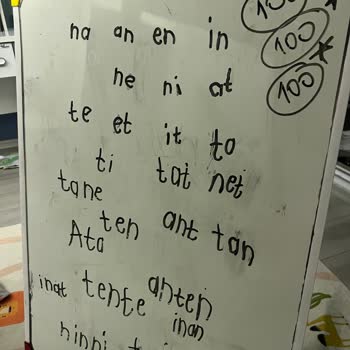 na an en in
ne ni at
te et it to
ti tat net
tane
ten ant tan
Ata
inat tente anten
inan
ninni
100
100
100